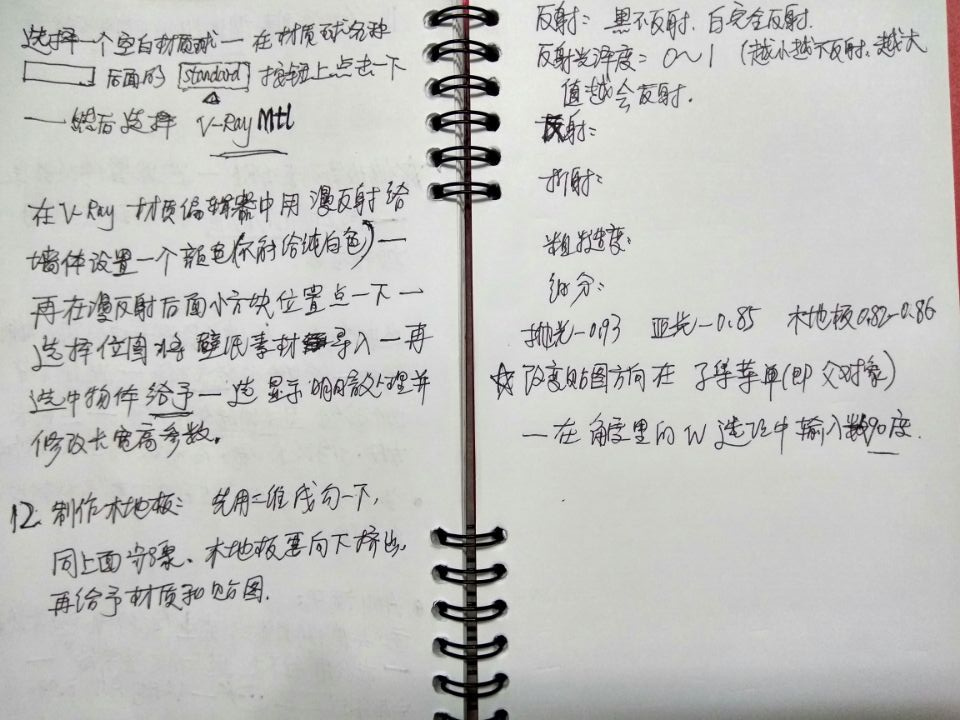 选择一个空白材质球一在材质球名称
后面的 standard 按钮上点击一下
一然后选择 V-Ray Mtl
在V-Ray 材质编辑器中用漫反射给
墙体设置一个颜色(不能给纯白色)一
再在漫反射后面小方块位置点一下一
选择位图将壁纸素材导入一再
选中物体给予一选显示明暗处理并
修改长宽高参数。
12. 制作木地板: 先用二维线勾一下,
同上面步骤、木地板要向下挤出,
再给予材质和贴图.
反射: 黑不反射. 白完全反射.
反射光泽度: 0~1 (越小越不反射,越大
值越会反射.
反射:
折射:
粗糙度:
细分:
抛光-0.93 亚光-0.85 木地板0.82-0.86
☆改变贴图方向在 子集菜单(即父对象)
一在角度里的W选项中输入90度.